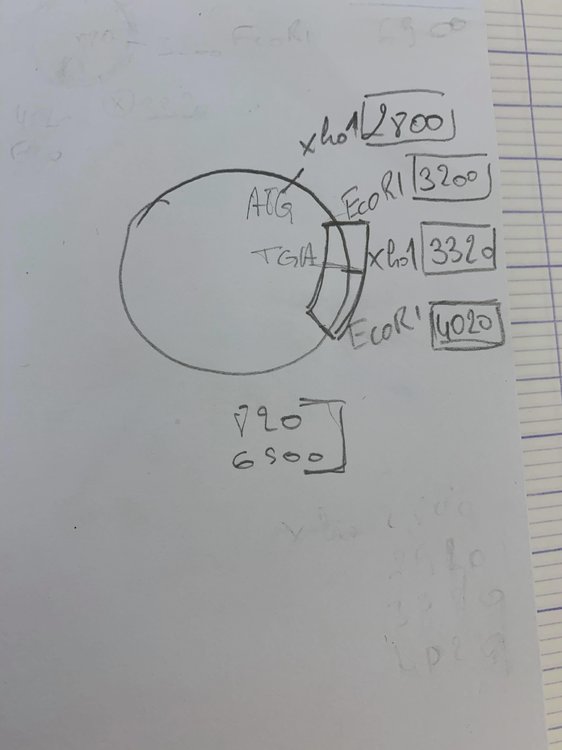 xho1 2800
ATG
EcoR1 3200
TGA
xho1 3320
EcoR1 4020
820
6900